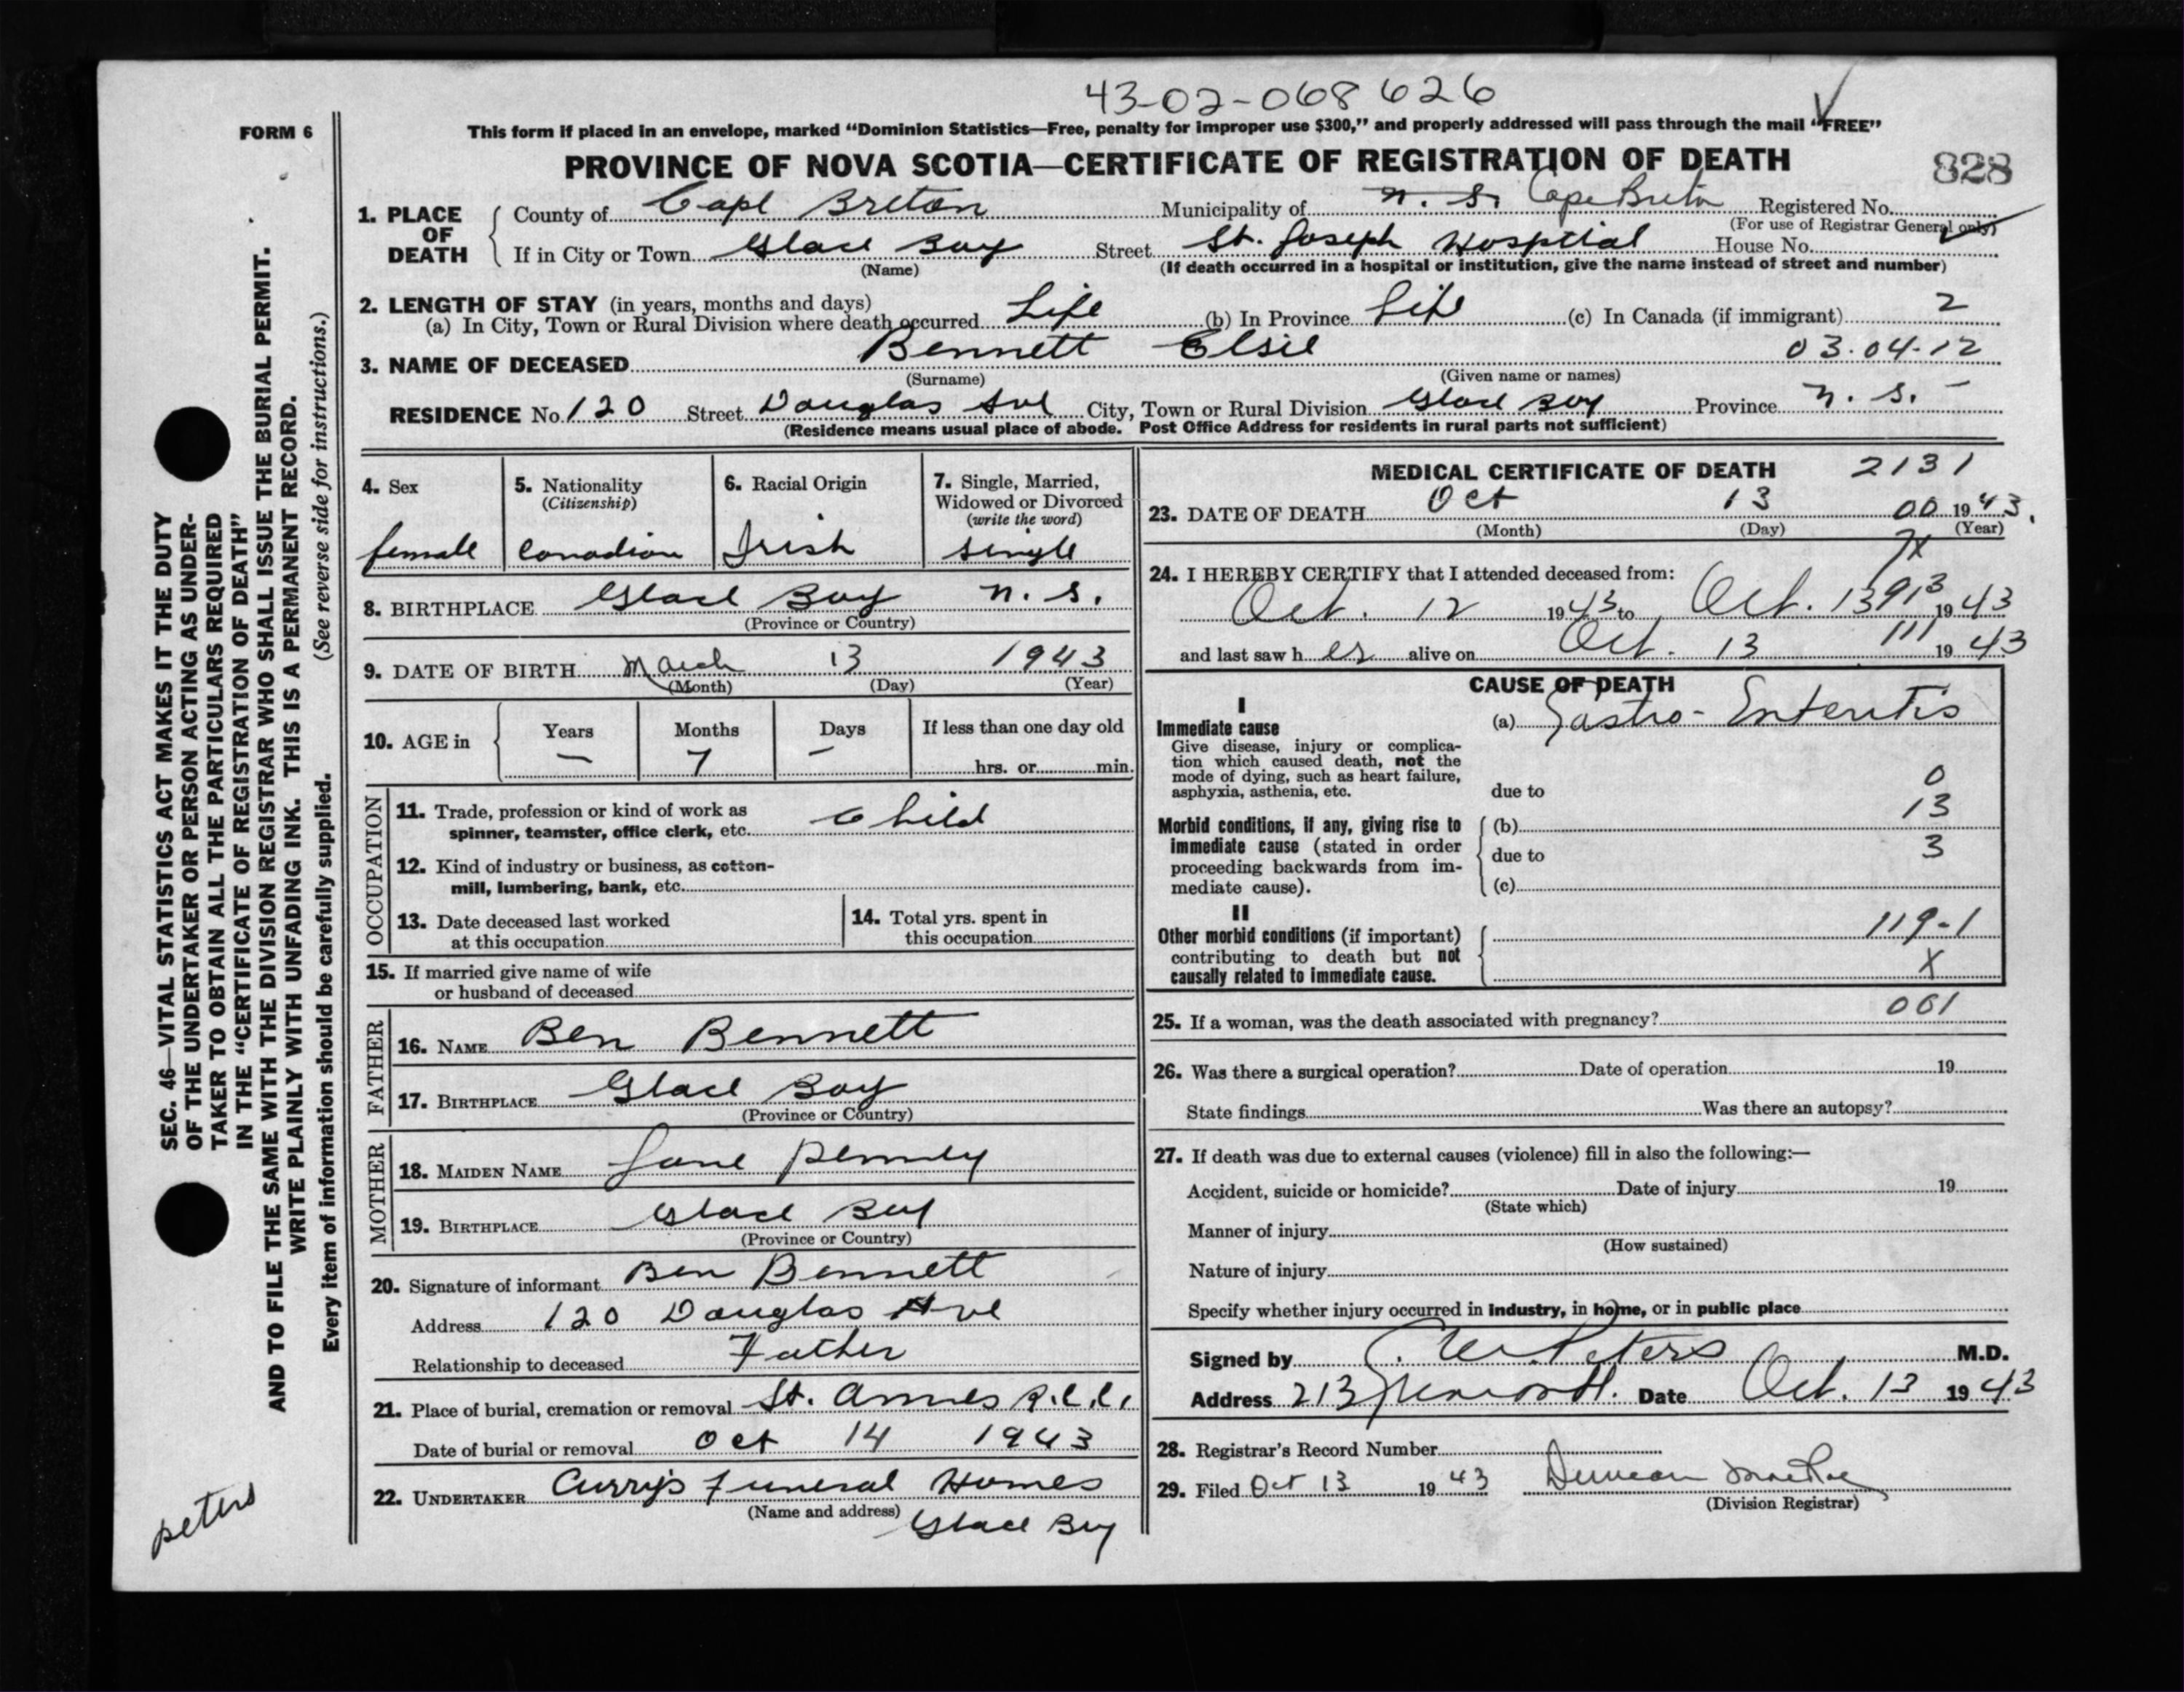 43-02-068626
FORM 6
This form if placed in an envelope, marked "Dominion Statistics—Free, penalty for improper use $300," and properly addressed will pass through the mail "FREE"
PROVINCE OF NOVA SCOTIA—CERTIFICATE OF REGISTRATION OF DEATH
828
1. PLACE OF DEATH
County of Cape Breton Municipality of N. S. Cape Breton Registered No.
(For use of Registrar General only)
If in City or Town Glace Bay Street St. Joseph Hospital House No.
(Name) (If death occurred in a hospital or institution, give the name instead of street and number)
2. LENGTH OF STAY (in years, months and days)
(a) In City, Town or Rural Division where death occurred Life (b) In Province Life (c) In Canada (if immigrant) 2
3. NAME OF DECEASED Bennett Elsie 03.04.12
(Surname) (Given name or names)
RESIDENCE No. 120 Street Douglas Ave City, Town or Rural Division Glace Bay Province N. S. –
(Residence means usual place of abode. Post Office Address for residents in rural parts not sufficient)
4. Sex
female
5. Nationality
(Citizenship)
Canadian
6. Racial Origin
Irish
7. Single, Married, Widowed or Divorced
(write the word)
single
8. BIRTHPLACE Glace Bay N. S.
(Province or Country)
9. DATE OF BIRTH March 13 1943
(Month) (Day) (Year)
10. AGE in
Years –
Months 7
Days –
If less than one day old
hrs. or min.
OCCUPATION
11. Trade, profession or kind of work as
spinner, teamster, office clerk, etc. Child
12. Kind of industry or business, as cotton-
mill, lumbering, bank, etc.
13. Date deceased last worked
at this occupation
14. Total yrs. spent in
this occupation
15. If married give name of wife
or husband of deceased
FATHER
16. NAME Ben Bennett
17. BIRTHPLACE Glace Bay
(Province or Country)
MOTHER
18. MAIDEN NAME Jane Penney
19. BIRTHPLACE Glace Bay
(Province or Country)
20. Signature of informant Ben Bennett
Address 120 Douglas Ave
Relationship to deceased Father
21. Place of burial, cremation or removal St. Annes R.C.C.
Date of burial or removal Oct 14 1943
22. UNDERTAKER Curry's Funeral Homes
(Name and address) Glace Bay
MEDICAL CERTIFICATE OF DEATH 2131
23. DATE OF DEATH Oct 13 00 1943.
(Month) (Day) (Year)
7x
24. I HEREBY CERTIFY that I attended deceased from:
Oct. 12 1943 to Oct. 13 913 1943
and last saw her alive on Oct. 13 111 1943
CAUSE OF DEATH
I
Immediate cause
Give disease, injury or complica-
tion which caused death, not the
mode of dying, such as heart failure,
asphyxia, asthenia, etc.
(a) Gastro-Enteritis
0
due to
13
Morbid conditions, if any, giving rise to
immediate cause (stated in order
proceeding backwards from im-
mediate cause).
(b)
due to 3
(c)
II
Other morbid conditions (if important)
contributing to death but not
causally related to immediate cause.
119-1
X
25. If a woman, was the death associated with pregnancy? 061
26. Was there a surgical operation? Date of operation 19
State findings Was there an autopsy?
27. If death was due to external causes (violence) fill in also the following:—
Accident, suicide or homicide? Date of injury 19
(State which)
Manner of injury
(How sustained)
Nature of injury
Specify whether injury occurred in industry, in home, or in public place
Signed by Peters M.D.
Address 213 Date Oct. 13 1943
28. Registrar's Record Number
29. Filed Oct 13 1943 Duncan MacRae
(Division Registrar)
SEC. 46—VITAL STATISTICS ACT MAKES IT THE DUTY
OF THE UNDERTAKER OR PERSON ACTING AS UNDER-
TAKER TO OBTAIN ALL THE PARTICULARS REQUIRED
IN THE "CERTIFICATE OF REGISTRATION OF DEATH"
AND TO FILE THE SAME WITH THE DIVISION REGISTRAR WHO SHALL ISSUE THE BURIAL PERMIT.
WRITE PLAINLY WITH UNFADING INK. THIS IS A PERMANENT RECORD.
Every item of information should be carefully supplied. (See reverse side for instructions.)
peters